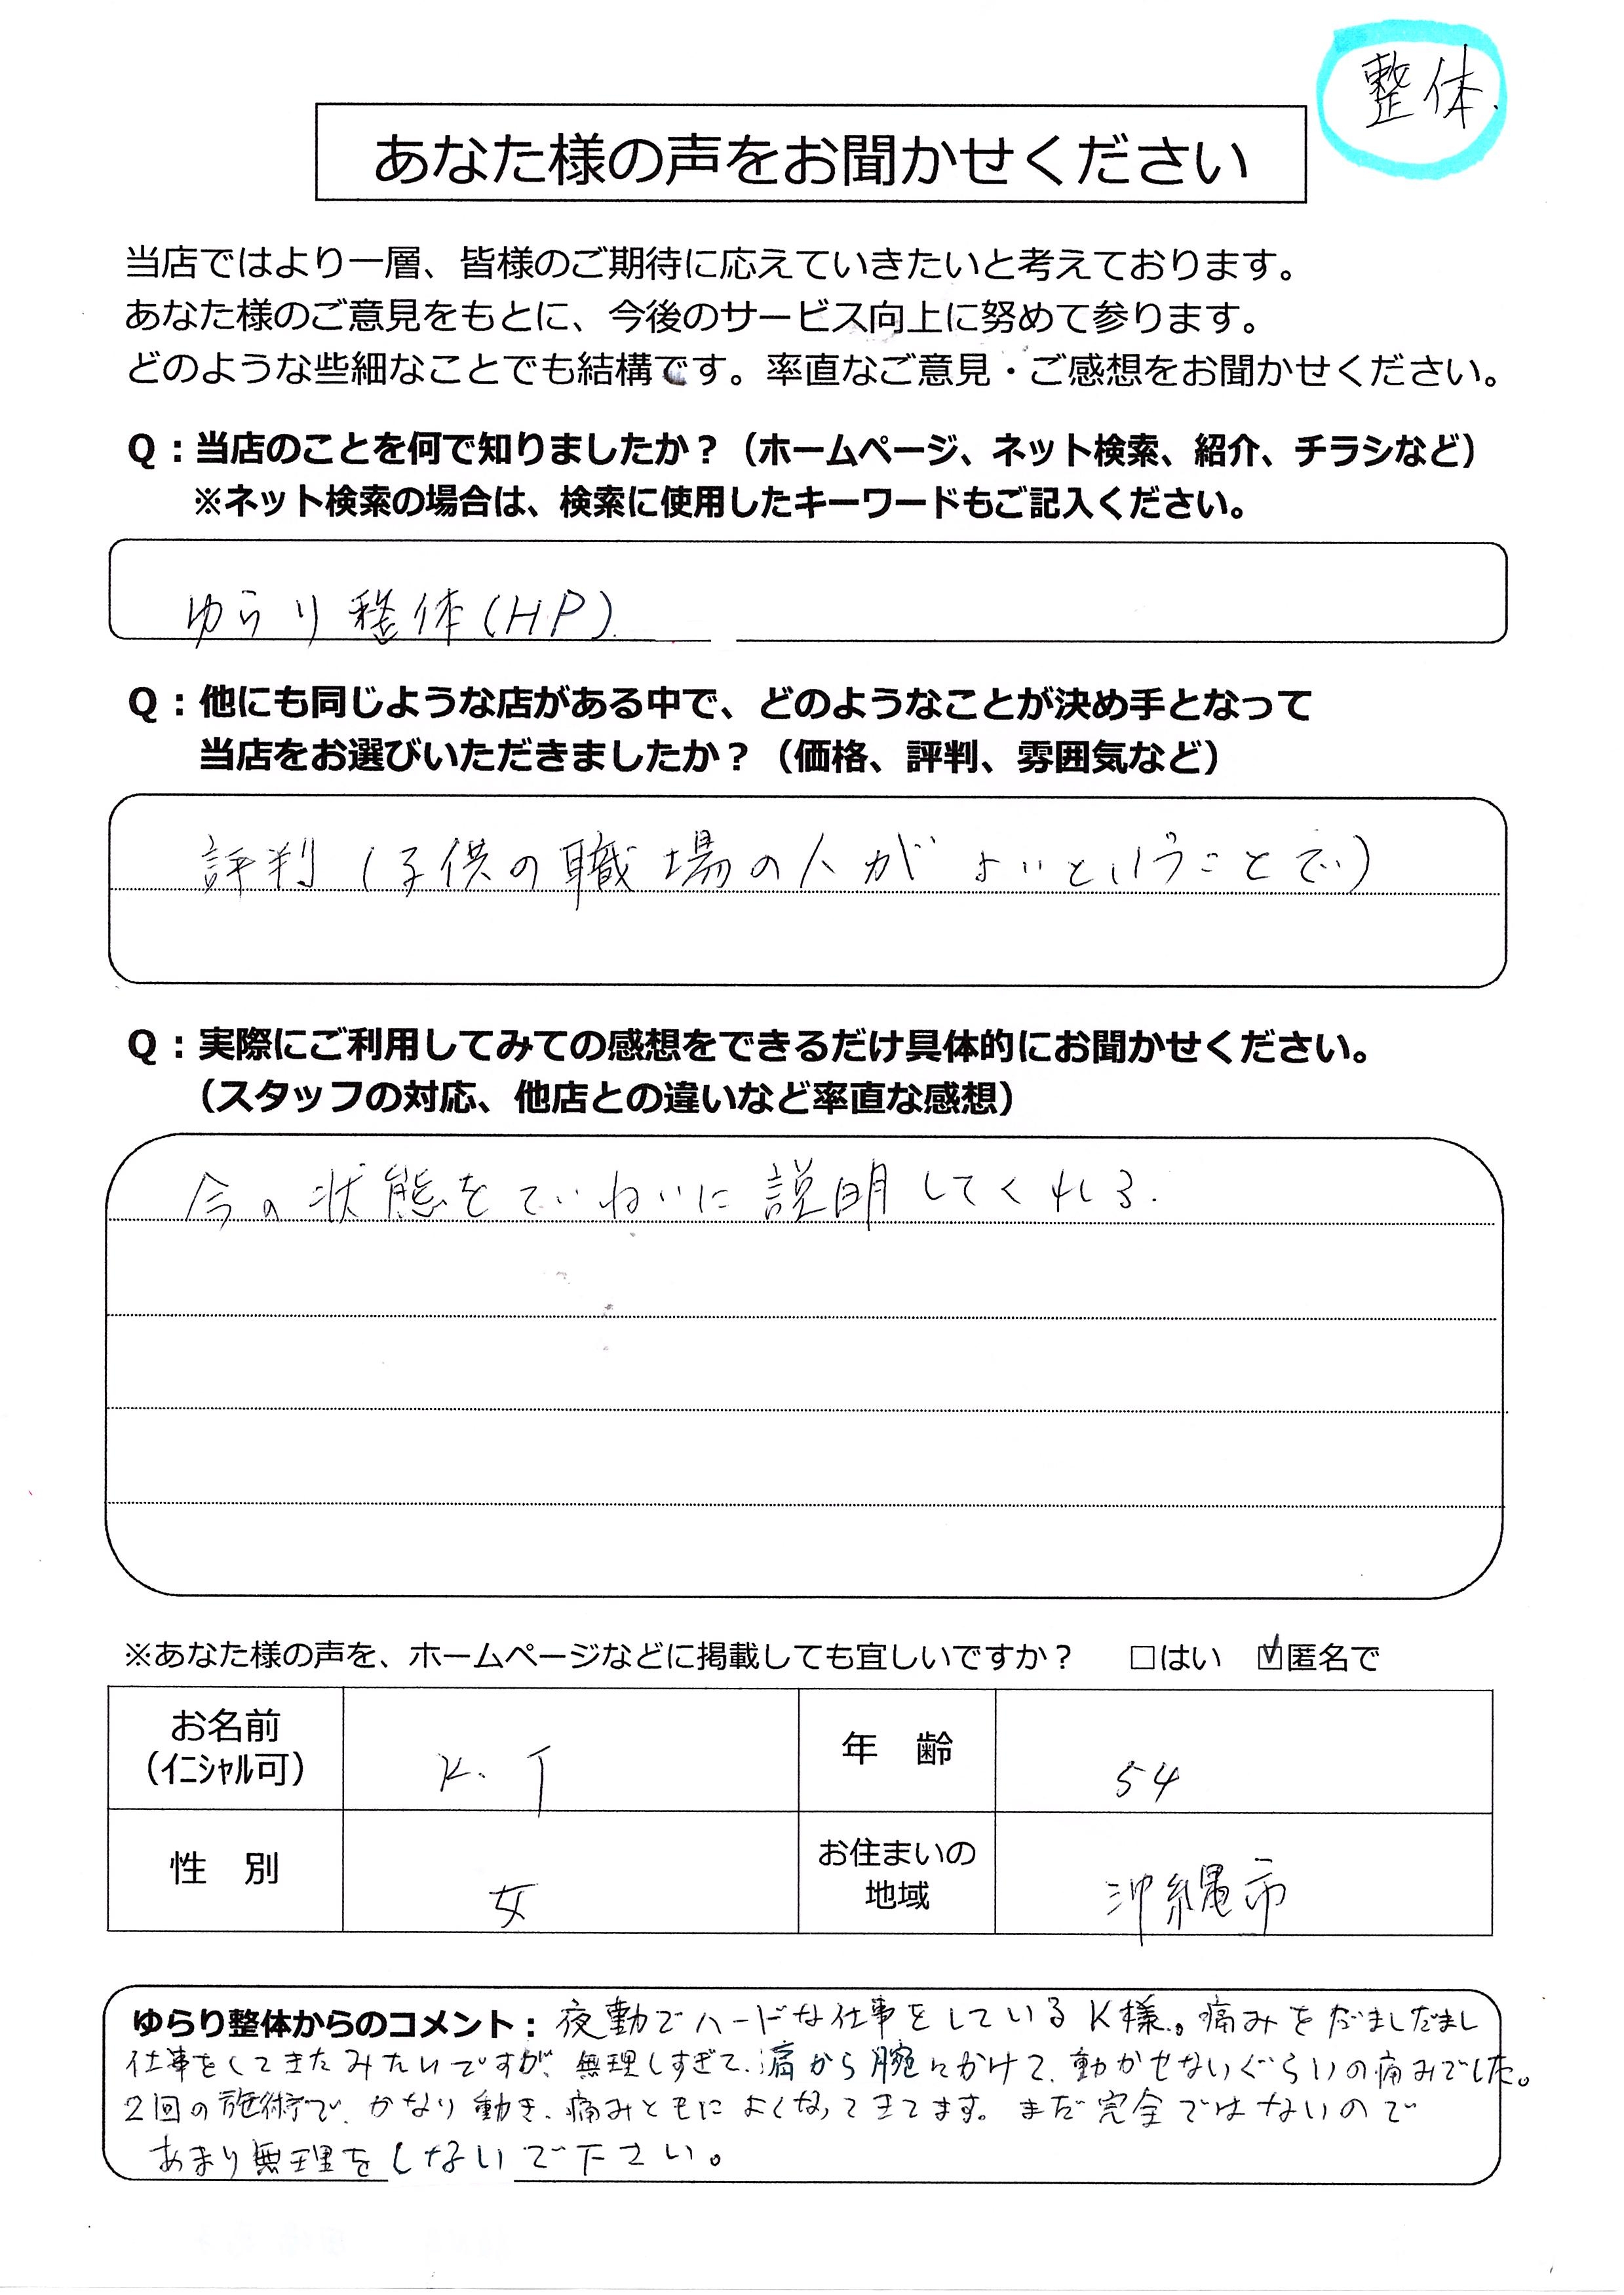 整体.
あなた様の声をお聞かせください
当店ではより一層、皆様のご期待に応えていきたいと考えております。
あなた様のご意見をもとに、今後のサービス向上に努めて参ります。
どのような些細なことでも結構です。率直なご意見・ご感想をお聞かせください。
Q：当店のことを何で知りましたか？（ホームページ、ネット検索、紹介、チラシなど）
※ネット検索の場合は、検索に使用したキーワードもご記入ください。
ゆらり整体(HP).
Q：他にも同じような店がある中で、どのようなことが決め手となって
当店をお選びいただきましたか？（価格、評判、雰囲気など）
評判（子供の職場の人がよいということで）
Q：実際にご利用してみての感想をできるだけ具体的にお聞かせください。
（スタッフの対応、他店との違いなど率直な感想）
今の状態をていねいに説明してくれる.
※あなた様の声を、ホームページなどに掲載しても宜しいですか？ □はい ☑匿名で
お名前 K. T 年 齢 54
（ｲﾆｼｬﾙ可）
性 別 女 お住まいの 沖縄市
地域
ゆらり整体からのコメント：夜勤でハードな仕事をしているK様。痛みをだましだまし
仕事をしてきたみたいですが、無理しすぎて、肩から腕にかけて、動かせないぐらいの痛みでした。
2回の施術で、かなり動き、痛みともによくなってきてます。まだ完全ではないので
あまり無理をしないで下さい。